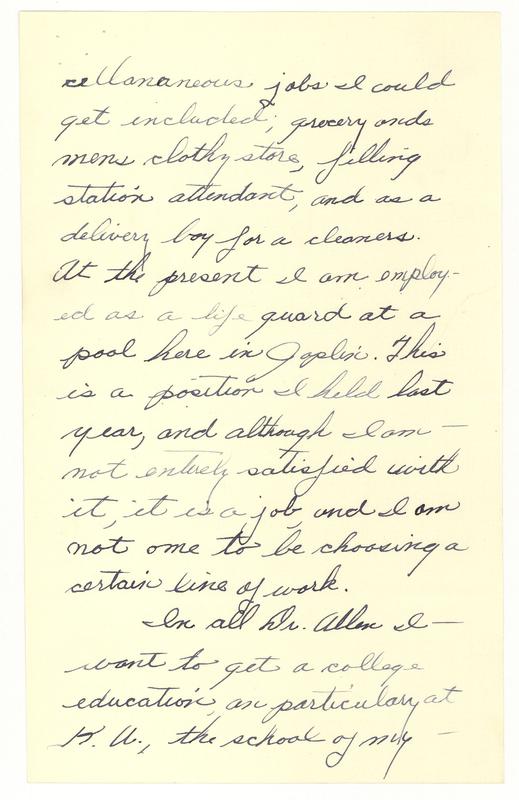 cellananeous jobs I could
get included; grocery ands
mens clothy store, filling
station attendant, and as a
delivery boy for a cleaners.
At the present I am employ-
ed as a life guard at a
pool here in Joplin. This
is a position I held last
year, and although I am —
not entirely satisfied with
it, it is a job, and I am
not ome to be choosing a
certain line of work.
In all Dr. Allen I —
want to get a college
education, an particulary at
K. U., the school of my —